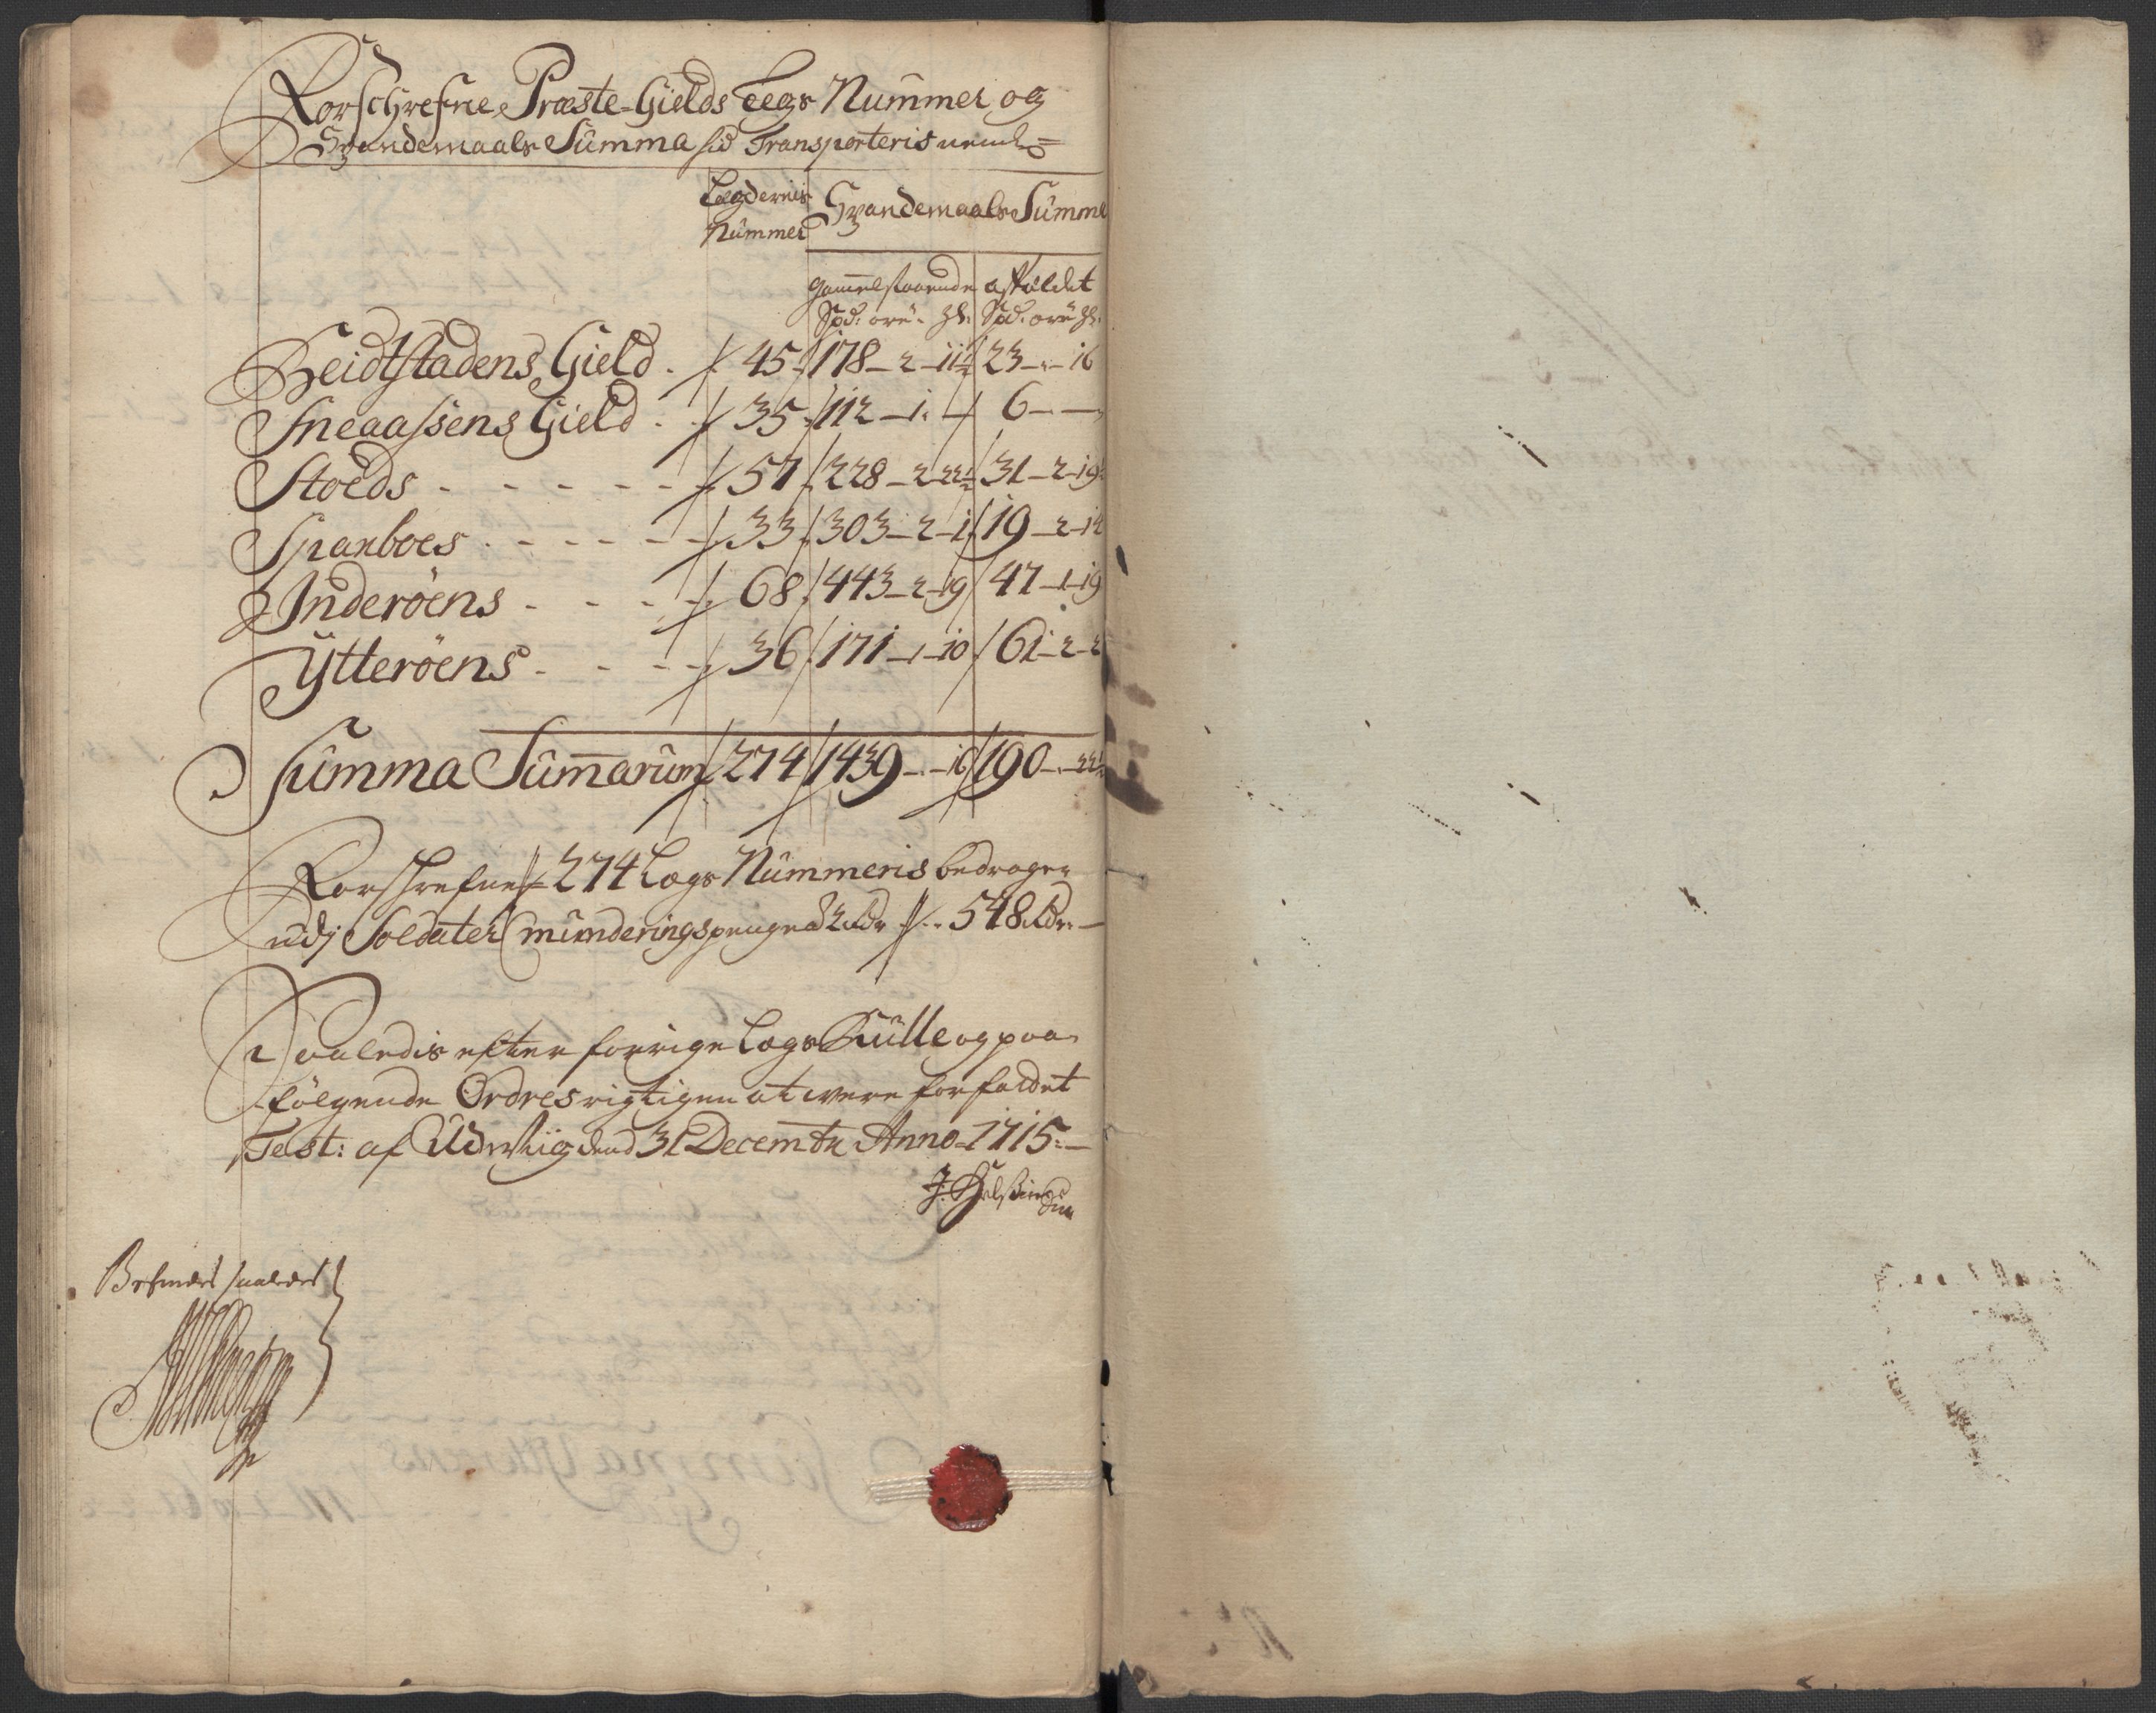 Forschrefne Præste-Gields Legs Nummer og
Qvandemaals Summa hid Transporteris neml:
Lægdernis Nummer
Qvandemaals Summa
gammelstaaende
affældet
Spd: örü: ʒl:
Spd: orü ʒl:
Beidtstadens Gield . 45 178 - 2 - 11½ 23 - - 16
Sneaassens Gield . . 35 112 - 1 - 6 - -
Stoeds - - - - - - 57 228 - 2 - 22½ 31 - 2 - 19
Sparboes . - - - - - 33 303 - 2 - 1 19 - 2 - 14
Inderöens - - - - 68 443 - 2 - 19 47 - 1 - 19
Ytteröens - - - - 36 171 - 1 - 10 61 - 2 - 2
Summa Sum̄arum 274 1439 - - 16 190 - - 22½
Forschrefne 274 Lægs Nummeris bedrager
udj Soldater munderingspenge á 2 rdr // .. 548 rdr: -
Saaledis efter forrige Lægs Rulle og paa
fölgende Ordres rigtigen at were forfaldet
Test: af Udviig dend 31 Decembr Anno 1715: -
Befindes saaledes